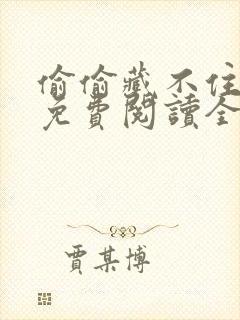 偷偷藏不住
免費閱讀全
賈某博